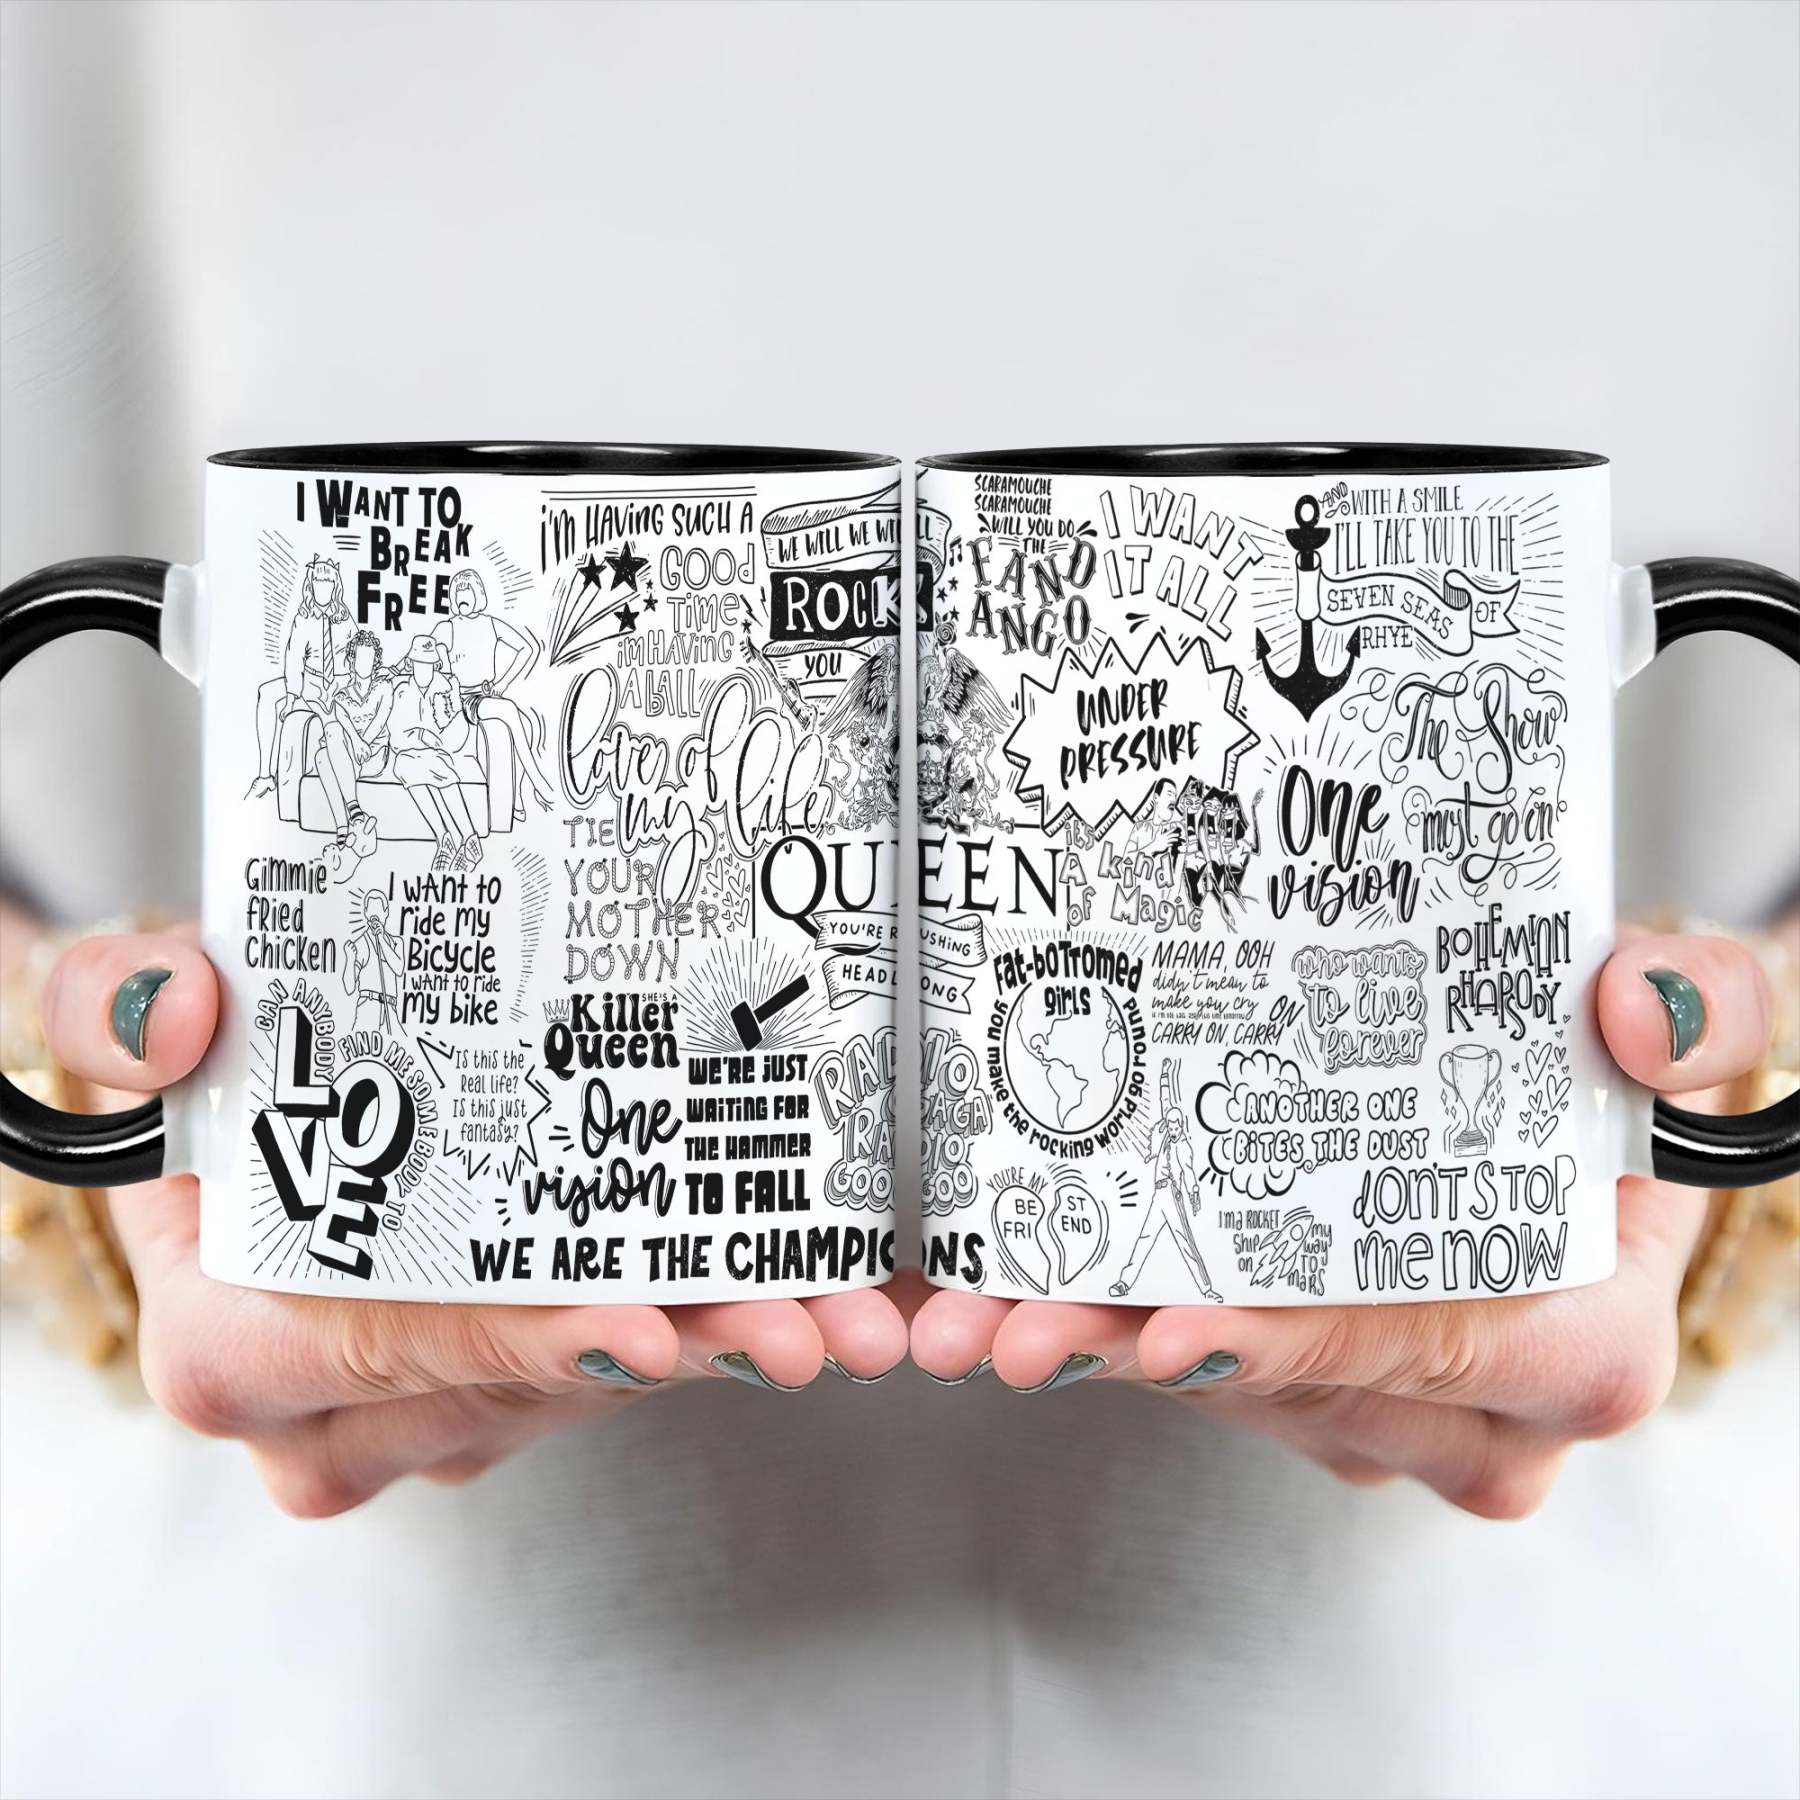 I WANT TO
BREAK
FREE
I'M HAVING SUCH A
GOOD
TIME
I'M HAVING
A BALL
WE WILL WE WI
ROCK
YOU
love of
my life
TIE
YOUR
MOTHER
DOWN
Gimmie
fried
Chicken
I WANT TO
ride my
Bicycle
I WANT TO ride
my bike
CAN ANYBODY
FIND ME SOMEBODY TO
LOVE
Is this the
Real life?
Is this just
fantasy?
SHE'S A
Killer
Queen
One
vision
WE'RE JUST
WAITING FOR
THE HAMMER
TO FALL
QUEEN
YOU'RE RUSHING
HEADLONG
RADIO
GAGA
RADIO
GOO GOO
WE ARE THE CHAMPIONS
SCARAMOUCHE
SCARAMOUCHE
WILL YOU DO
THE
FAND
ANGO
I WANT
IT ALL
AND WITH A SMILE
I'LL TAKE YOU TO THE
SEVEN SEAS OF
RHYE
UNDER
PRESSURE
it's
A Kind
of Magic
One
vision
The Show
must go on
Fat-bottomed
girls
you make the rocking world go round
MAMA, OOH
didn't mean to
make you cry
CARRY ON, CARRY ON
who wants
to live
forever
BOHEMIAN
RHAPSODY
ANOTHER ONE
BITES THE DUST
YOU'RE MY
BE ST
FRI END
I'm a ROCKET
Ship
on my
way
TO
mars
dON'T STOP
me NOW